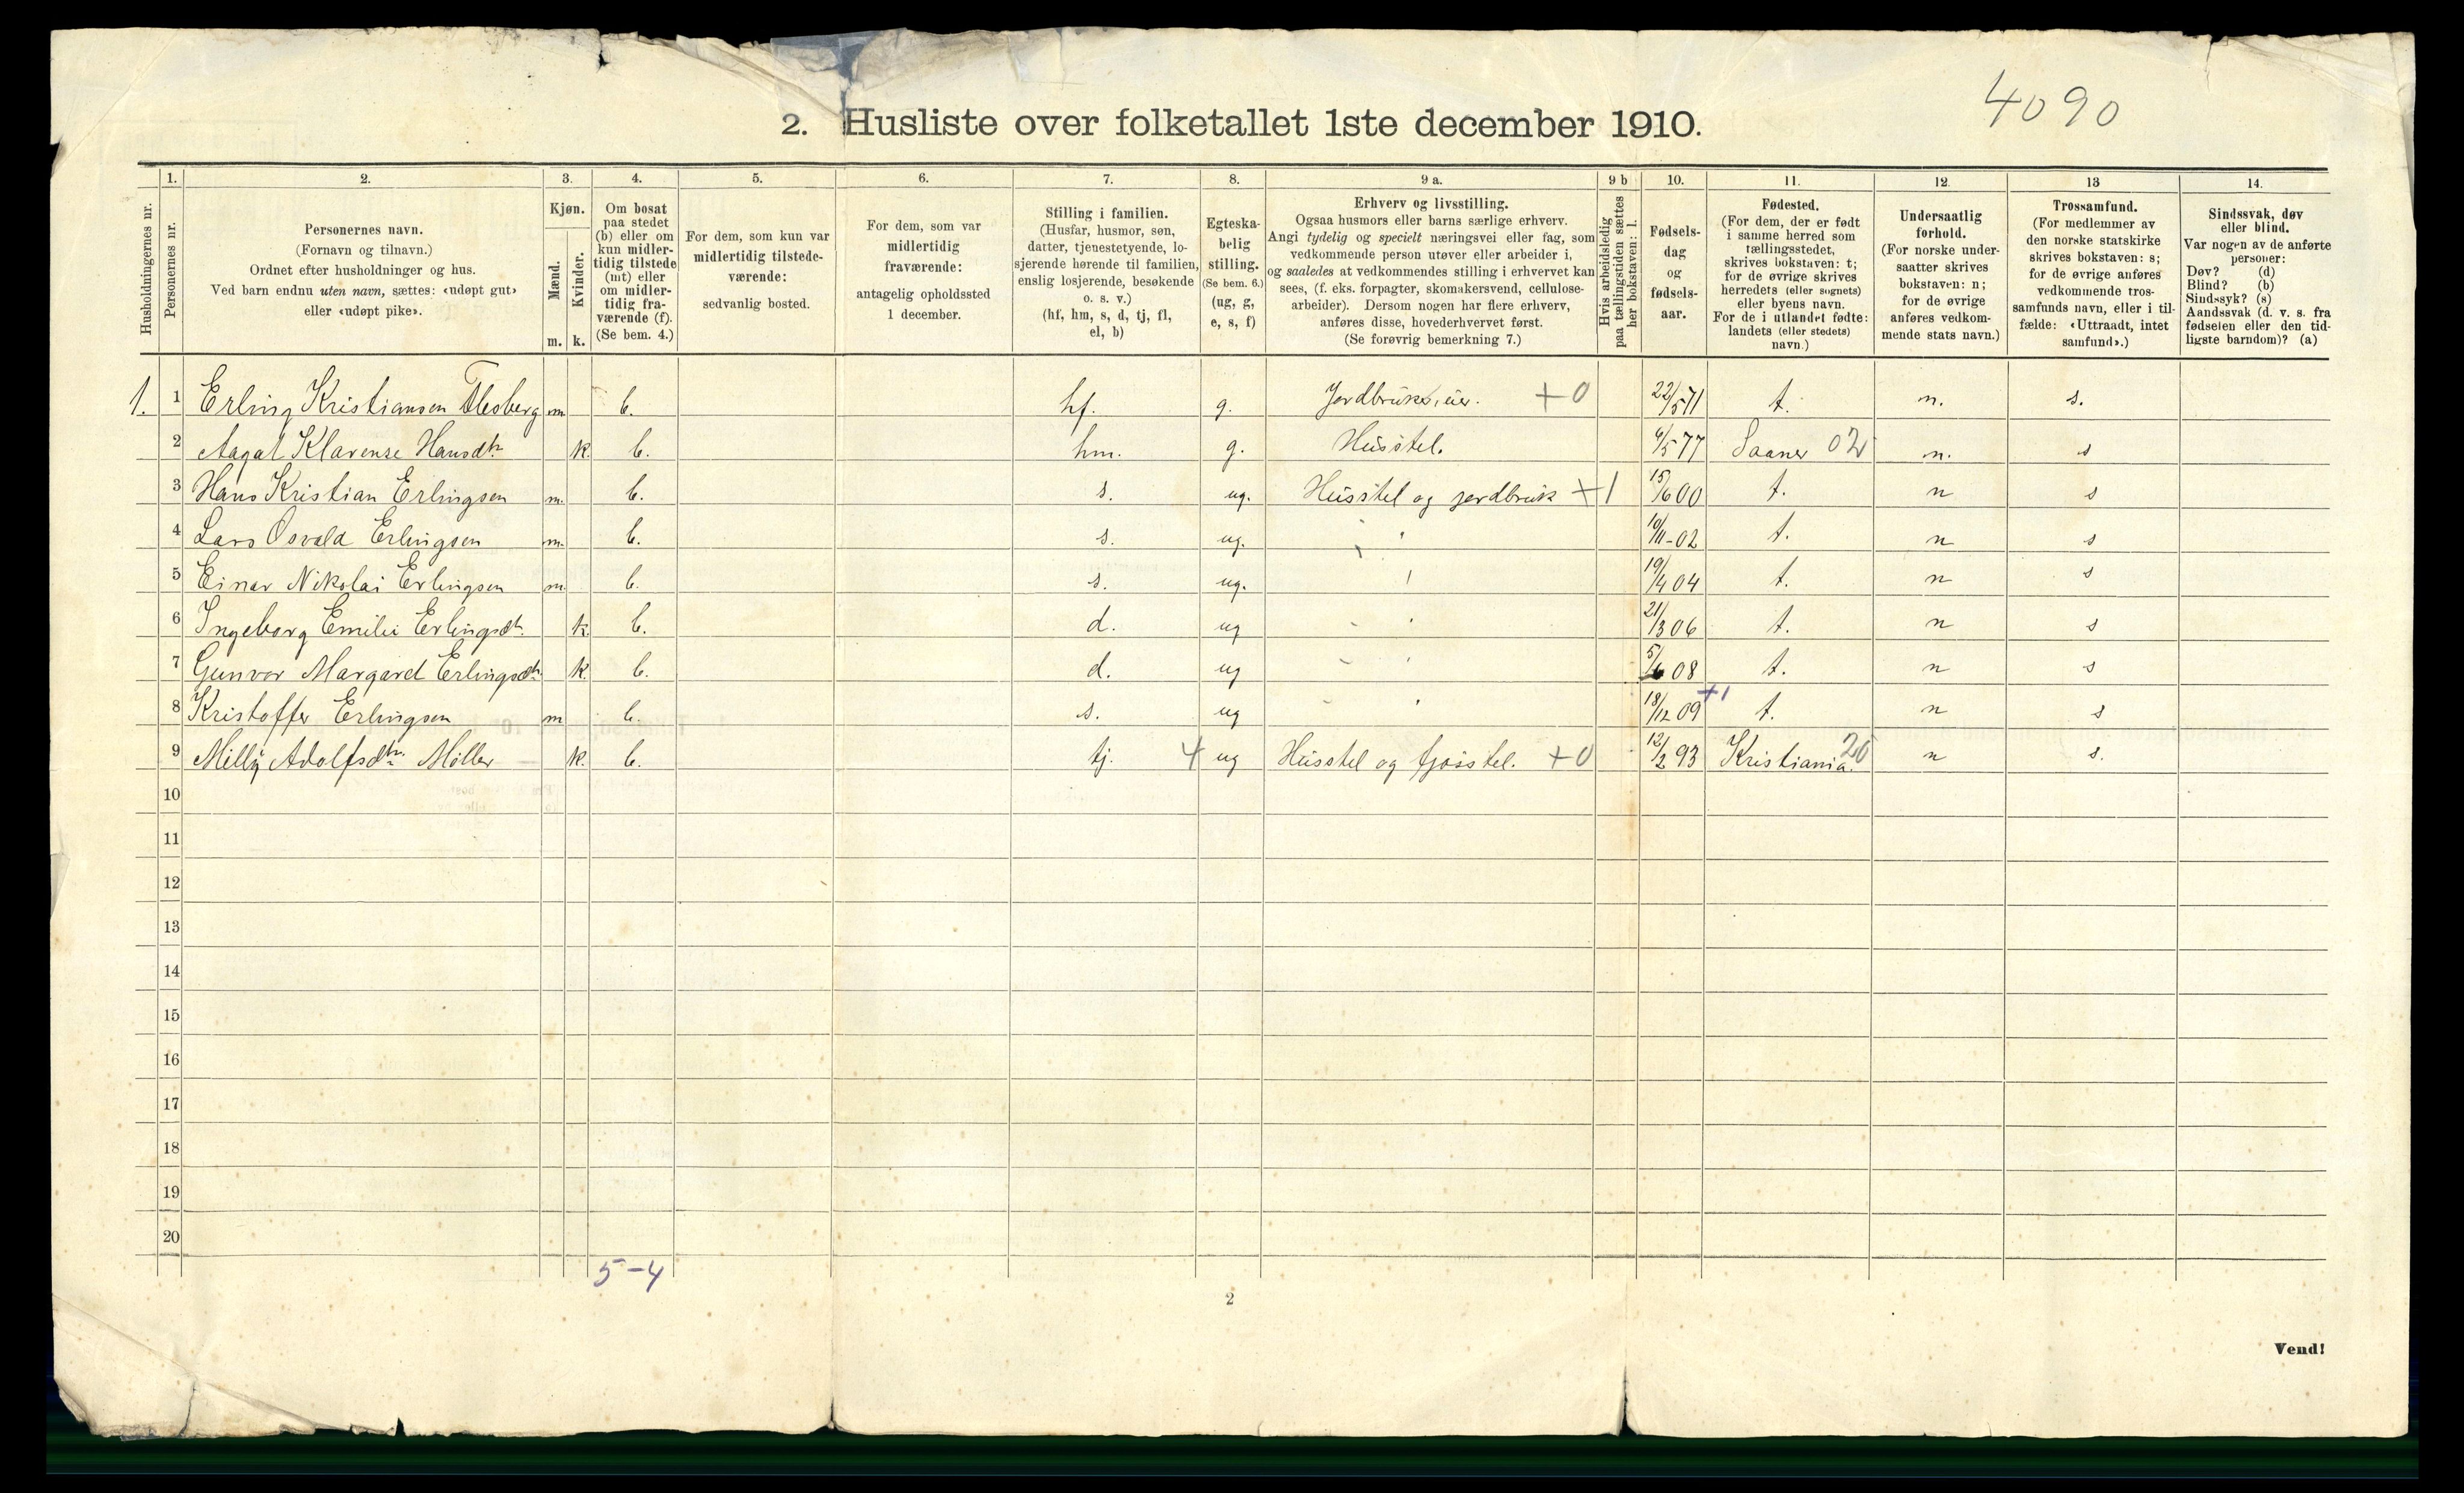 4090
2. Husliste over folketallet 1ste december 1910.
Husholdningernes nr.
1.
Personernes nr.
2.
Personernes navn.
(Fornavn og tilnavn.)
Ordnet efter husholdninger og hus.
Ved barn endnu uten navn, sættes: «udøpt gut»
eller «udøpt pike».
3.
Kjøn.
Mænd.
Kvinder.
m. k.
4.
Om bosat
paa stedet
(b) eller om
kun midler-
tidig tilstede
(mt) eller
om midler-
tidig fra-
værende (f).
(Se bem. 4.)
5.
For dem, som kun var
midlertidig tilstede-
værende:
sedvanlig bosted.
6.
For dem, som var
midlertidig
fraværende:
antagelig opholdssted
1 december.
7.
Stilling i familien.
(Husfar, husmor, søn,
datter, tjenestetyende, lo-
sjerende hørende til familien,
enslig losjerende, besøkende
o. s. v.)
(hf, hm, s, d, tj, fl,
el, b)
8.
Egteska-
belig
stilling.
(Se bem. 6.)
(ug, g,
e, s, f)
9 a.
Erhverv og livsstilling.
Ogsaa husmors eller barns særlige erhverv.
Angi tydelig og specielt næringsvei eller fag, som
vedkommende person utøver eller arbeider i,
og saaledes at vedkommendes stilling i erhvervet kan
sees, (f. eks. forpagter, skomakersvend, cellulose-
arbeider). Dersom nogen har flere erhverv,
anføres disse, hovederhvervet først.
(Se forøvrig bemerkning 7.)
9 b
Hvis arbeidsledig
paa tællingstiden sættes
her bokstaven: l.
10.
Fødsels-
dag
og
fødsels-
aar.
11.
Fødested.
(For dem, der er født
i samme herred som
tællingsstedet,
skrives bokstaven: t;
for de øvrige skrives
herredets (eller sognets)
eller byens navn.
For de i utlandet fødte:
landets (eller stedets)
navn.)
12.
Undersaatlig
forhold.
(For norske under-
saatter skrives
bokstaven: n;
for de øvrige
anføres vedkom-
mende stats navn.)
13
Trossamfund.
(For medlemmer av
den norske statskirke
skrives bokstaven: s;
for de øvrige anføres
vedkommende tros-
samfunds navn, eller i til-
fælde: «Uttraadt, intet
samfund».)
14.
Sindssvak, døv
eller blind.
Var nogen av de anførte
personer:
Døv? (d)
Blind? (b)
Sindssyk? (s)
Aandssvak (d. v. s. fra
fødselen eller den tid-
ligste barndom)? (a)
1. 1 Erling Kristiansen Flesberg m b. hf. g. Jordbruker, eier. +0 22/5 71 t. n. s.
2 Aagat Klarense Hansdtr k. b. hm. g. Husstel. 6/5 77 Saaner 02 n. s
3 Hans Kristian Erlingsen m. b. s. ug. Husstel og jordbruk +1 15/6 00 t. n s
4 Lars Osvald Erlingsen m. b. s. ug. " " 10/11-02 t. n s
5 Einar Nikolai Erlingsen m. b. s. ug. " 19/4 04 t. n s
6 Ingeborg Emilie Erlingsdt. k. b. d. ug " " 21/3 06 t. n s
7 Gunvor Margaret Erlingsdtr k. b. d. ug " " 5/6 08 t. n s
8 Kristoffer Erlingsen m b. s. ug " " 18/12 09 +1 t. n s
9 Milly Adolfsdtr. Møller k. b. tj. 4 ug Husstel og fjøsstel. +0 12/2 93 Kristiania. 20 n s.
10
11
12
13
14
15
16
17
18
19
20
5-4
2
Vend!